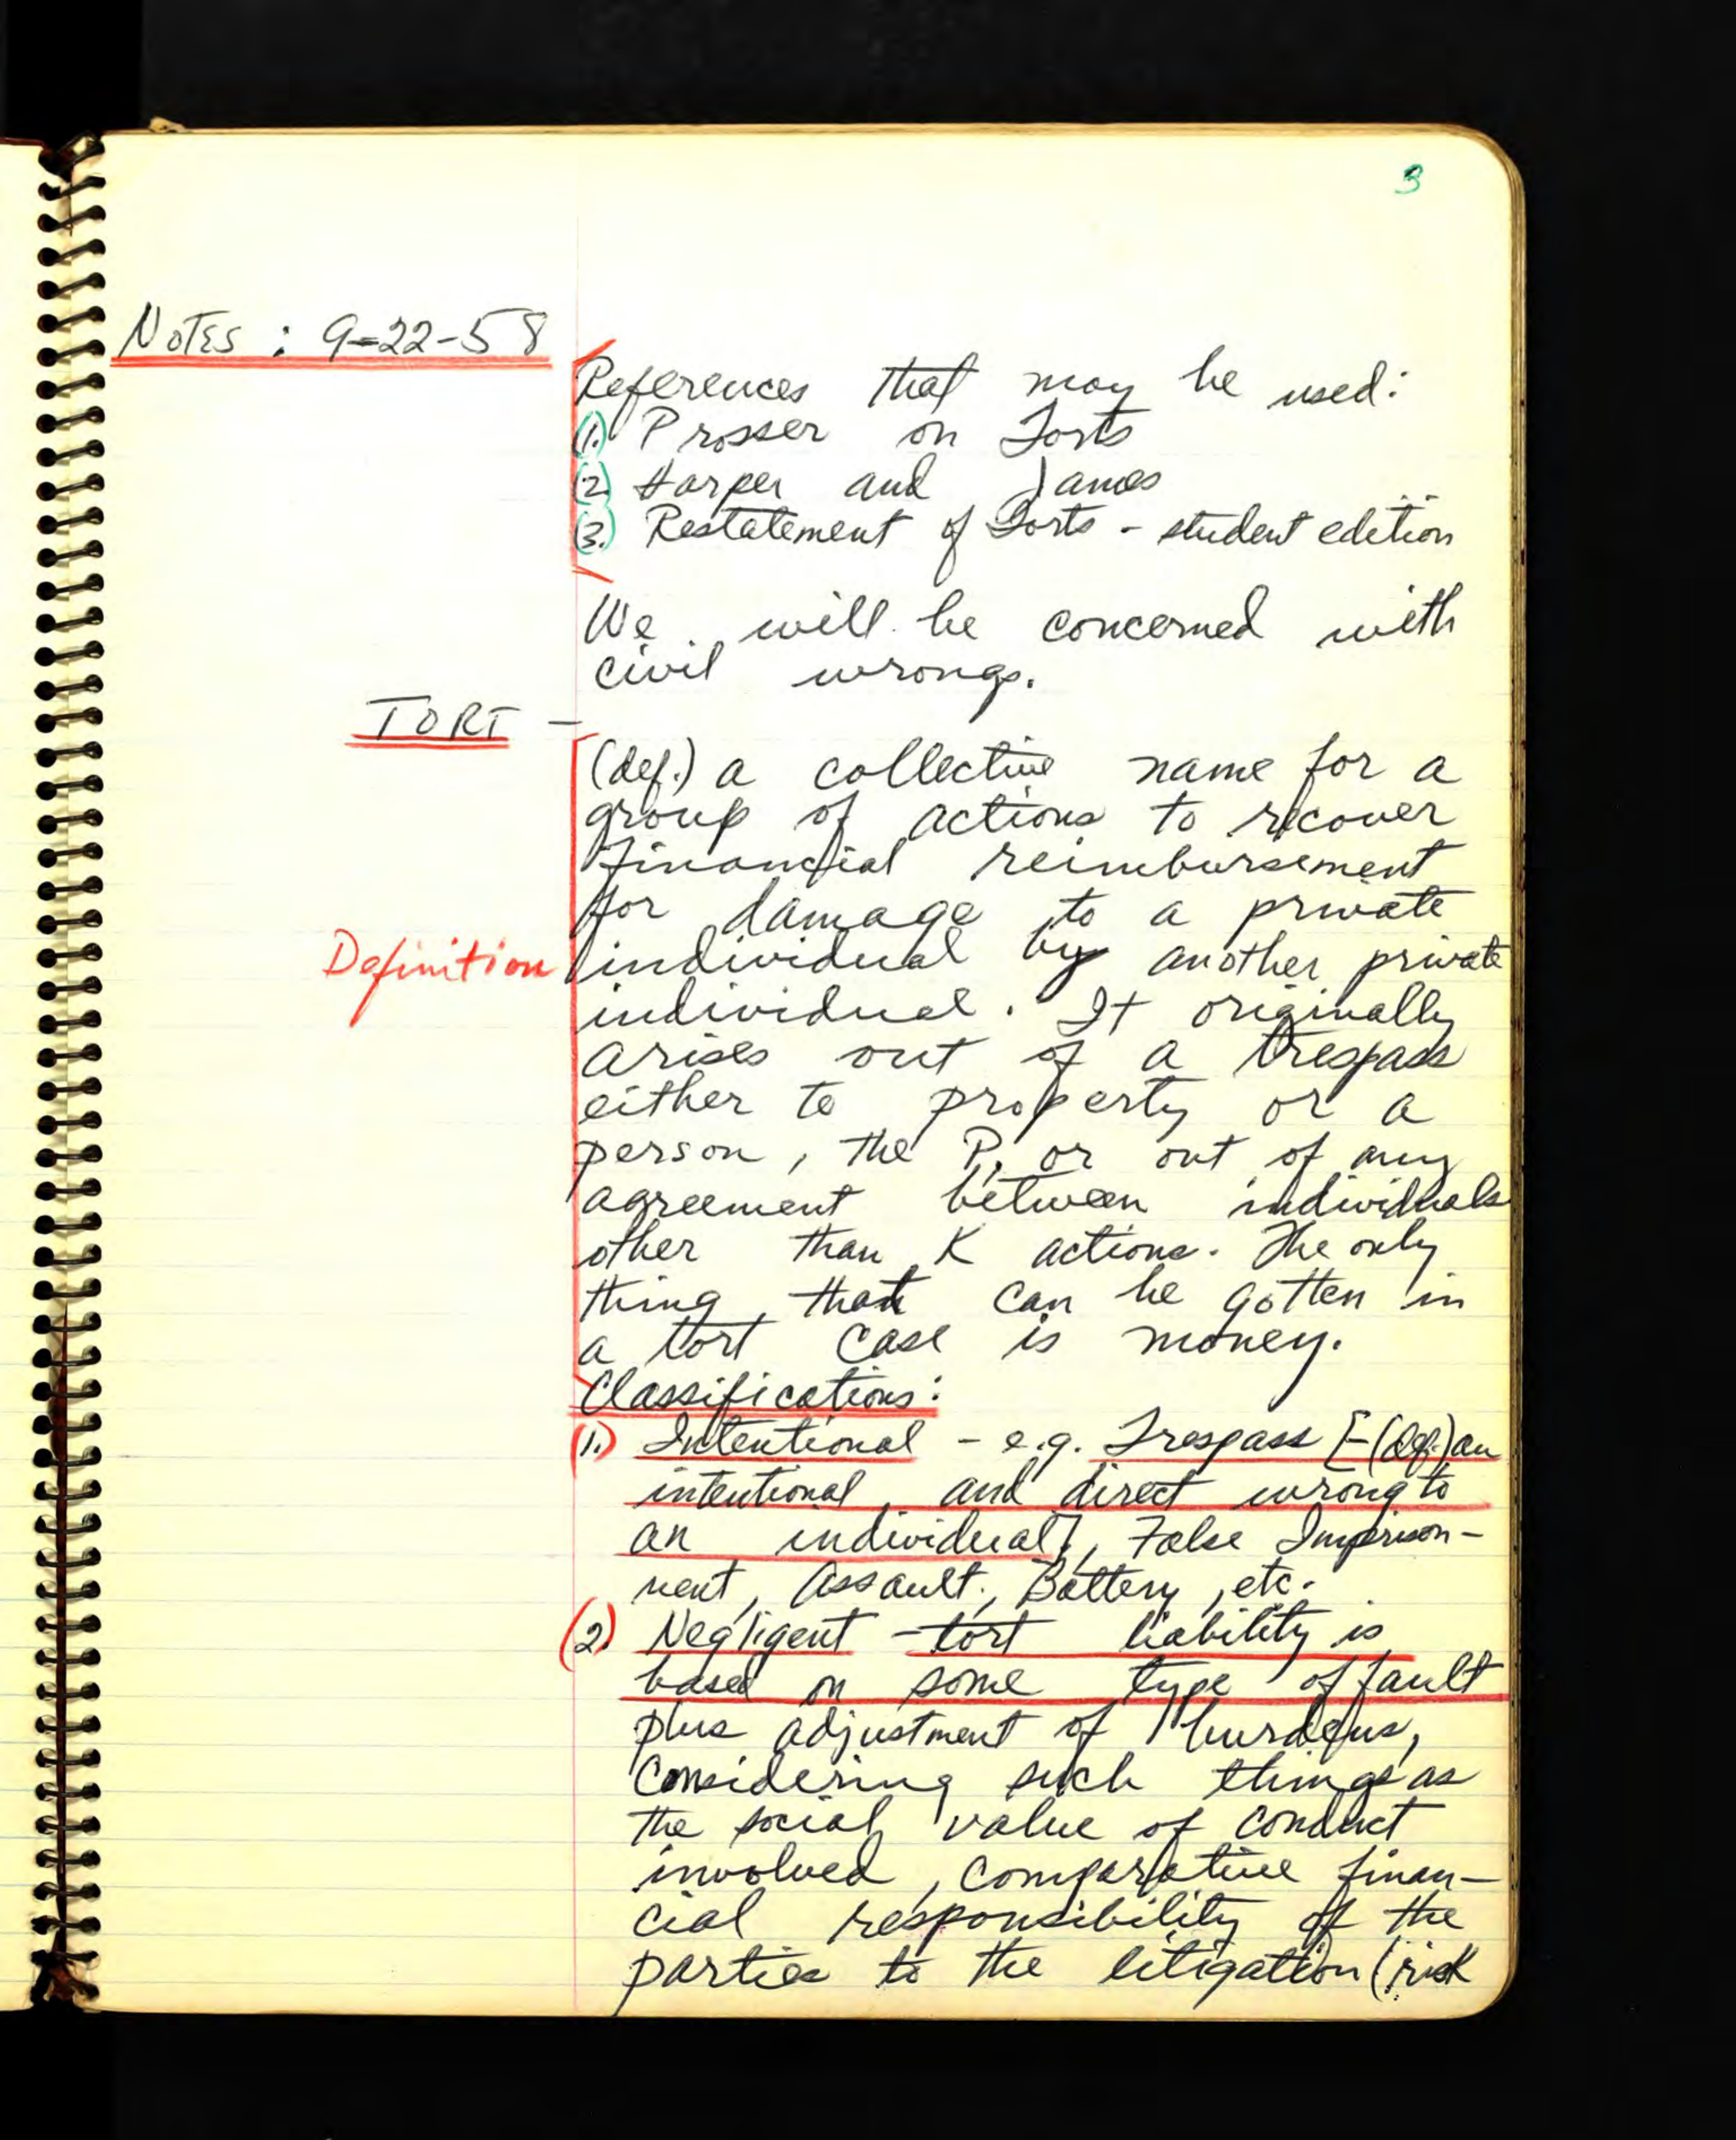 3
Notes : 9-22-58
References that may be used:
(1.) Prosser on Torts
(2.) Harper and James
(3.) Restatement of Torts - student edition
We will be concerned with
civil wrongs.
TORT -
(def.) a collective name for a
group of actions to recover
financial reimbursement
for damage to a private
Definition
individual by another private
individual. It originally
arises out of a trespass
either to property or a
person, the P, or out of any
agreement between individuals
other than K actions. The only
thing that can be gotten in
a tort case is money.
Classifications:
(1.) Intentional - e.g. Trespass [-(def.) an
intentional and direct wrong to
an individual], False Imprison-
ment, Assault, Battery, etc.
(2.) Negligent - tort liability is
based on some type of fault
plus adjustment of burdens,
considering such things as
the social value of conduct
involved, comparative finan-
cial responsibility of the
parties to the litigation (risk